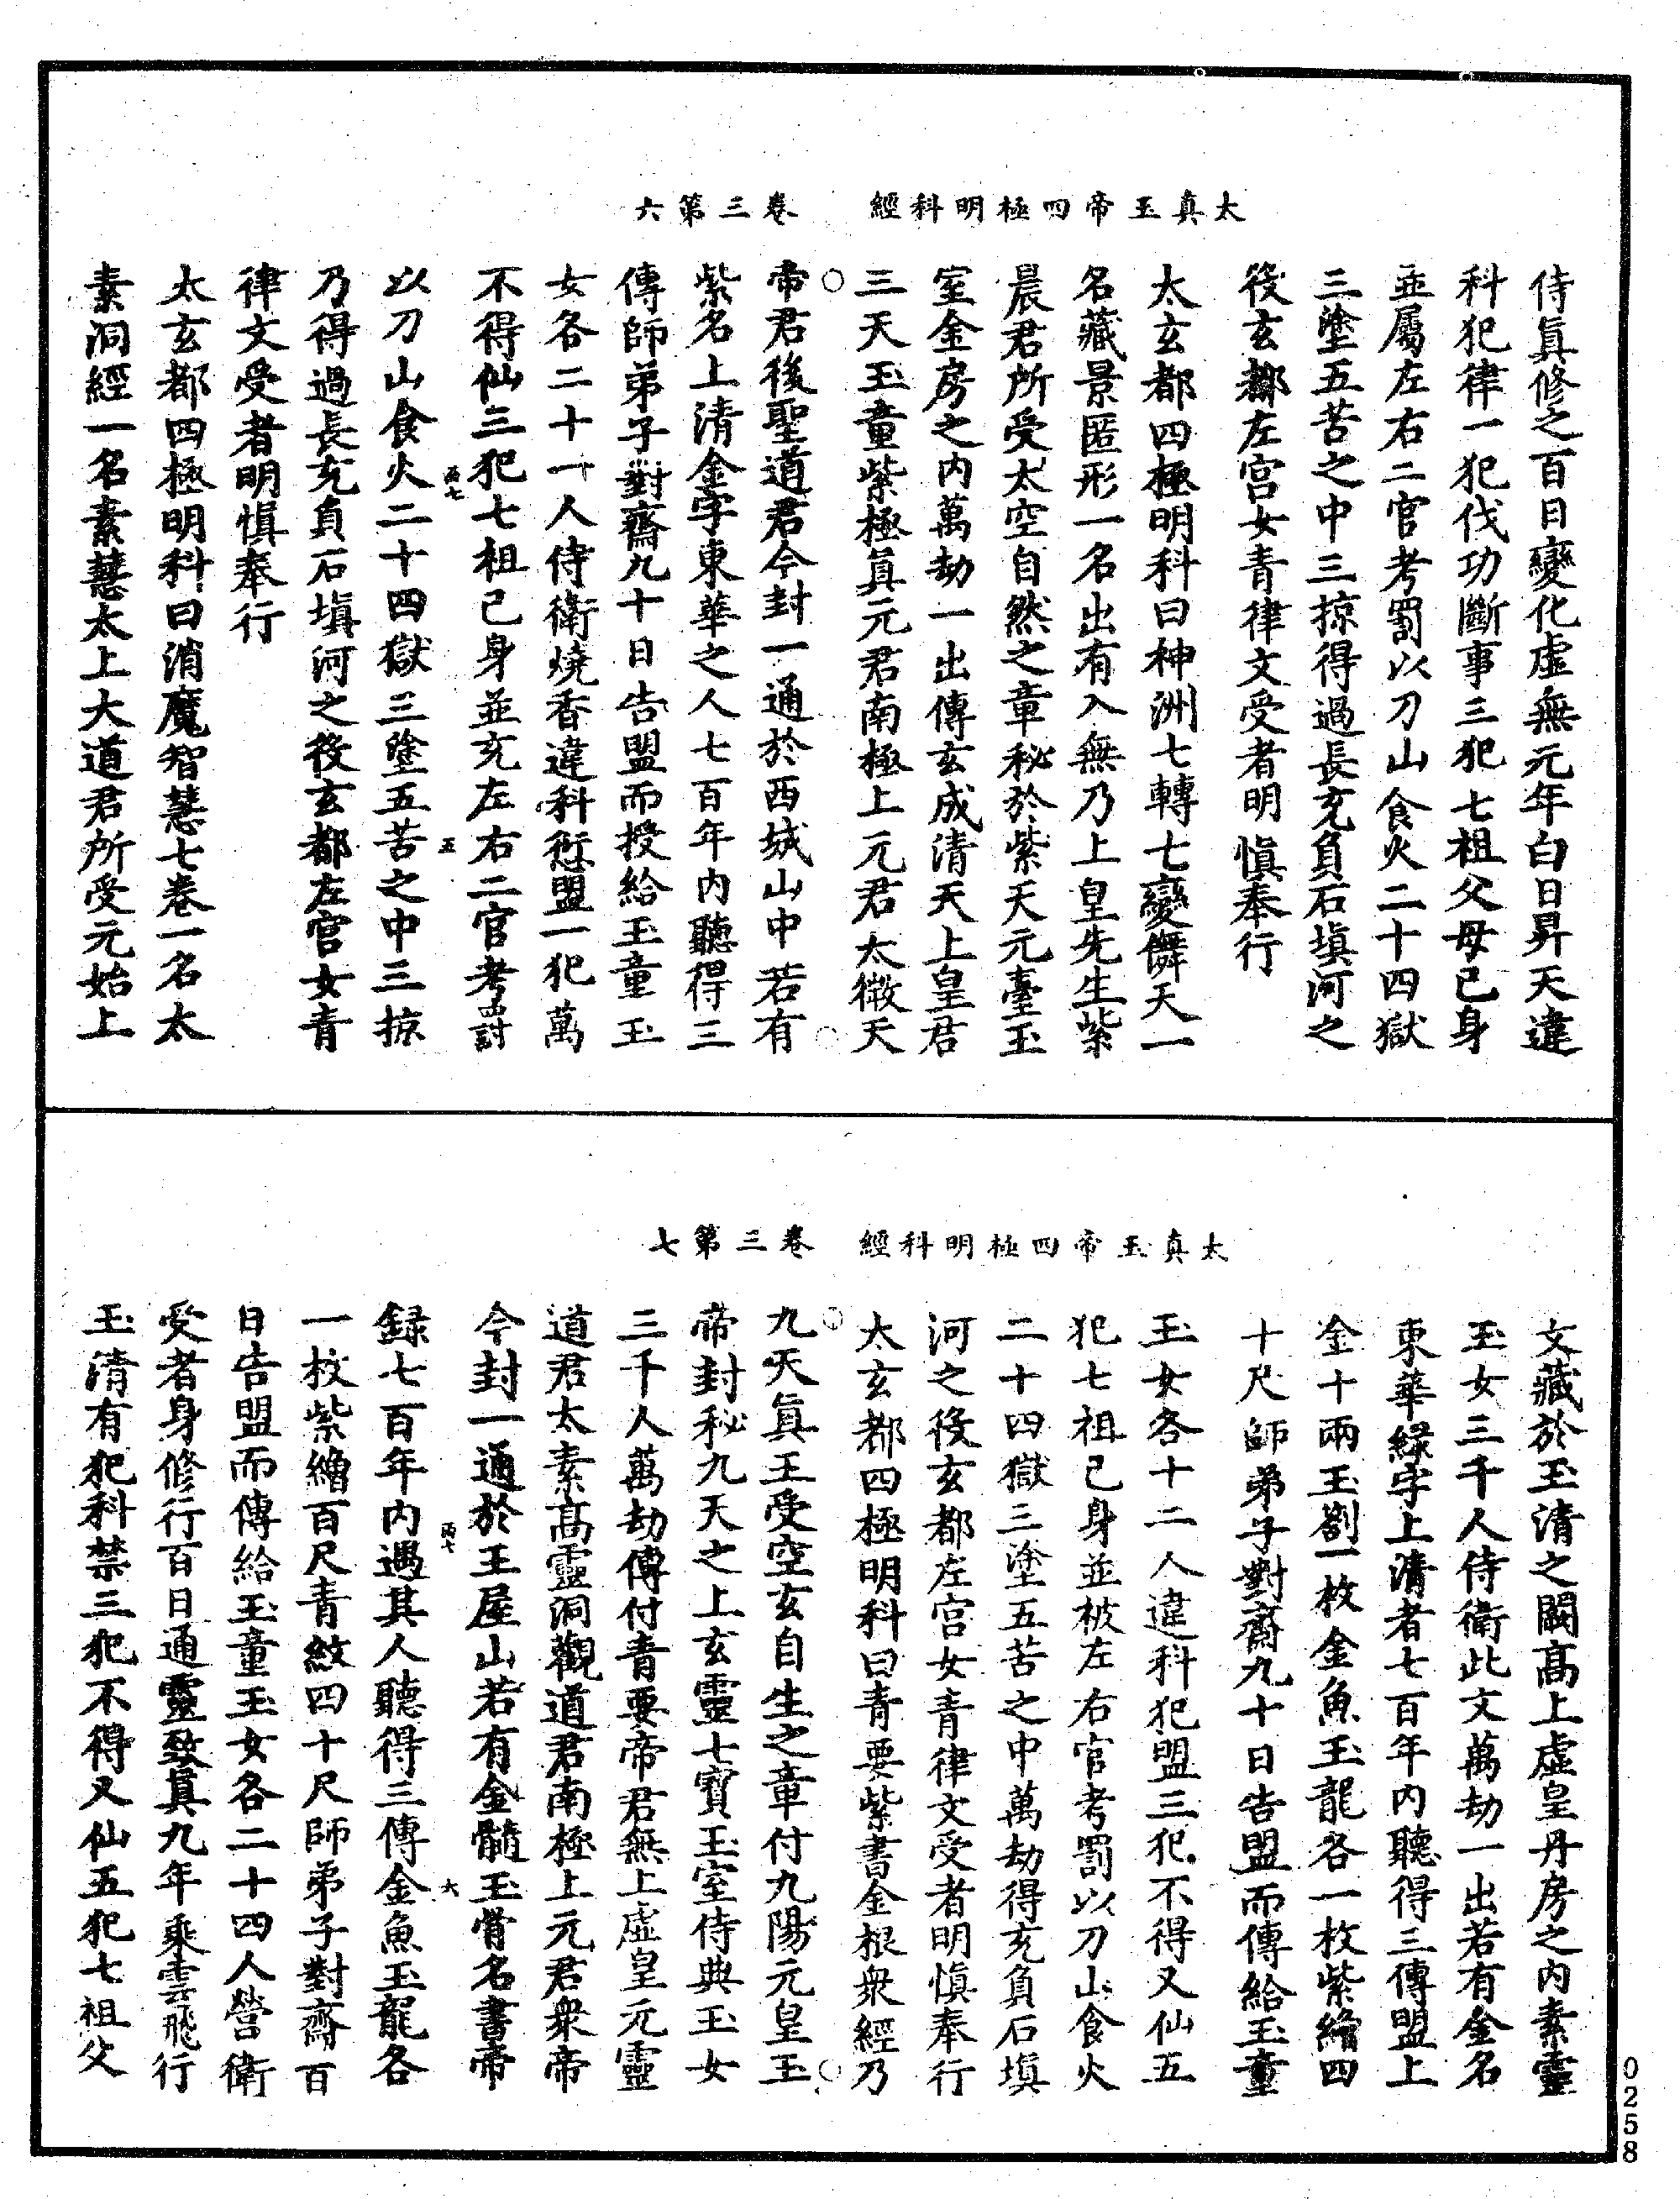 太真玉帝四極明科經　卷三第六
侍真修之百日變化虛無元年白日昇天違
科犯律一犯伐功斷事三犯七祖父母已身
並屬左右二官考罰以刀山食火二十四獄
三塗五苦之中三掠得過長充負石填河之
役玄都左宮女青律文受者明慎奉行
太玄都四極明科曰神洲七轉七變儛天一
名藏景匿形一名出有入無乃上皇先生紫
晨君所受太空自然之章秘於紫天元臺玉
室金房之內萬劫一出傳玄成清天上皇君
三天玉童紫極真元君南極上元君太微天
帝君後聖道君今封一通於西城山中若有
紫名上清金字東華之人七百年內聽得三
傳師弟子對齋九十日告盟而授給玉童玉
女各二十一人侍衛燒香違科愆盟一犯萬
不得仙三犯七祖已身並充左右二官考罰
丙七
五
以刀山食火二十四獄三塗五苦之中三掠
乃得過長充負石填河之役玄都左宮女青
律文受者明慎奉行
太玄都四極明科曰消魔智慧七卷一名太
素洞經一名素慧太上大道君所受元始上
太真玉帝四極明科經　卷三第七
文藏於玉清之闕高上虛皇丹房之內素靈
玉女三千人侍衛此文萬劫一出若有金名
東華綠字上清者七百年內聽得三傳盟上
金十兩玉劄一枚金魚玉龍各一枚紫繒四
十尺師弟子對齋九十日告盟而傳給玉童
玉女各十二人違科犯盟三犯不得又仙五
犯七祖已身並被左右官考罰以刀山食火
二十四獄三塗五苦之中萬劫得充負石填
河之役玄都左宮女青律文受者明慎奉行
太玄都四極明科曰青要紫書金根衆經乃
九天真王受空玄自生之章付九陽元皇玉
帝封秘九天之上玄靈七寶玉室侍典玉女
三千人萬劫傳付青要帝君無上虛皇元靈
道君太素高靈洞觀道君南極上元君衆帝
今封一通於王屋山若有金髓玉骨名書帝
丙七
六
録七百年內遇其人聽得三傳金魚玉龍各
一枚紫繒百尺青紋四十尺師弟子對齋百
日告盟而傳給玉童玉女各二十四人營衛
受者身修行百日通靈致真九年乘雲飛行
玉清有犯科禁三犯不得又仙五犯七祖父
0258